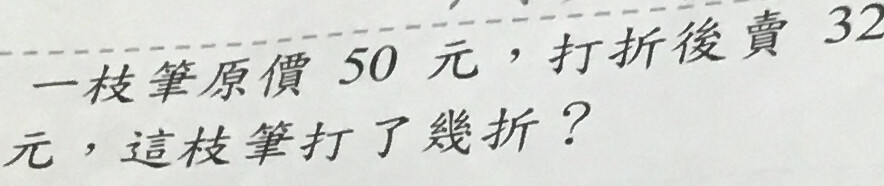 一枝筆原價 50 元，打折後賣 32
元，這枝筆打了幾折？